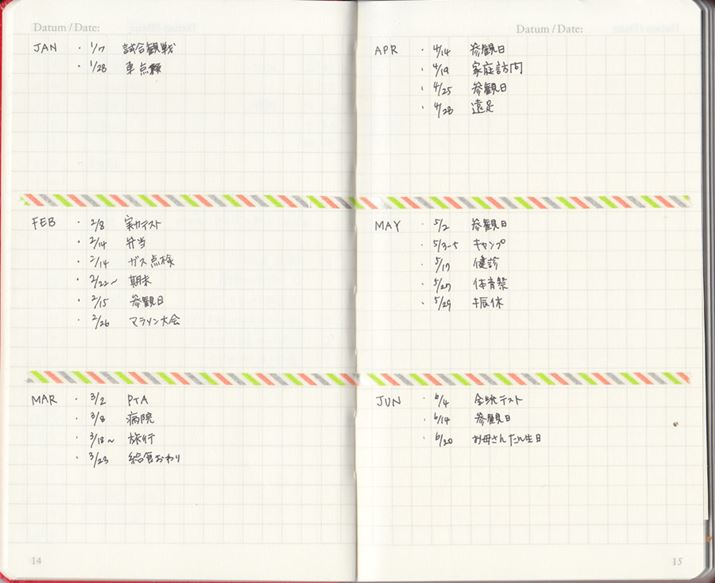 Datum / Date:
JAN
・ 1/7 試合観戦
・ 1/28 車点検
FEB
・ 2/8 実力テスト
・ 2/14 弁当
・ 2/14 ガス点検
・ 2/22〜 期末
・ 2/15 参観日
・ 2/26 マラソン大会
MAR
・ 3/2 PTA
・ 3/8 病院
・ 3/18〜 旅行
・ 3/23 給食おわり
14
Datum / Date:
APR
・ 4/14 参観日
・ 4/19 家庭訪問
・ 4/25 参観日
・ 4/28 遠足
MAY
・ 5/2 参観日
・ 5/3-5 キャンプ
・ 5/17 健診
・ 5/27 体育祭
・ 5/29 振休
JUN
・ 6/4 全统テスト
・ 6/14 参観日
・ 6/20 お母さんたん生日
15